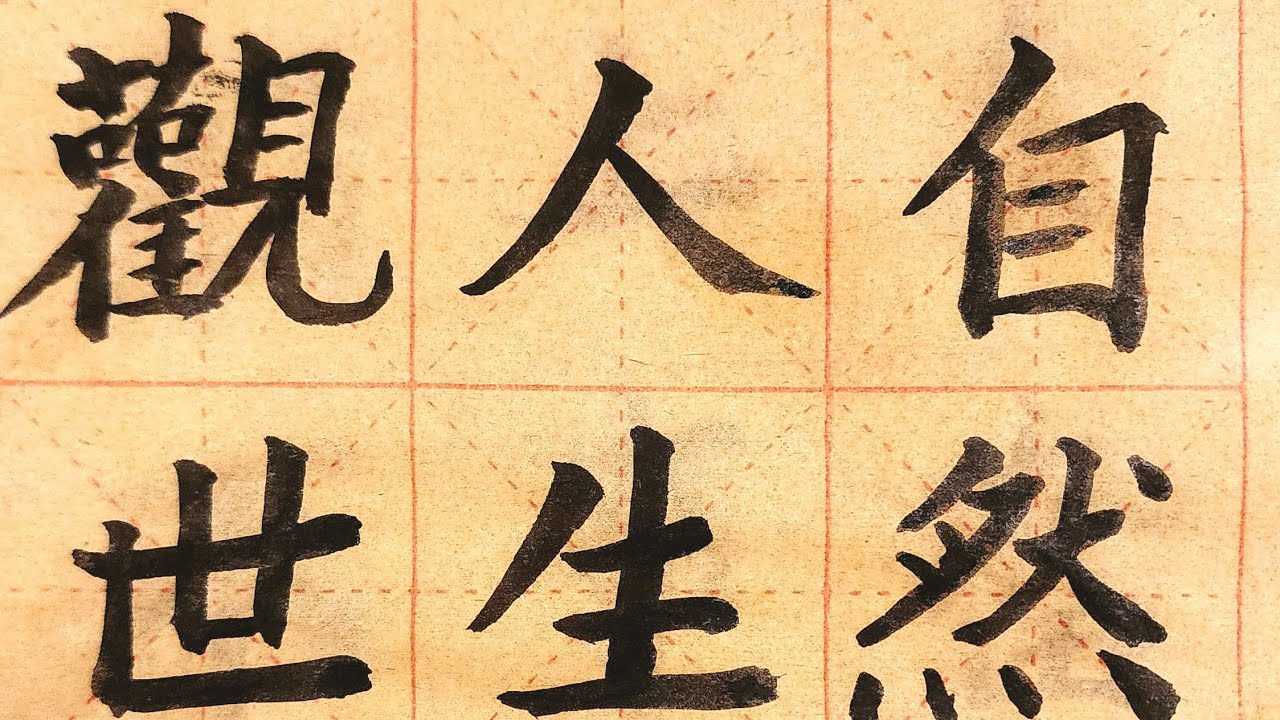 自然
人生
觀世